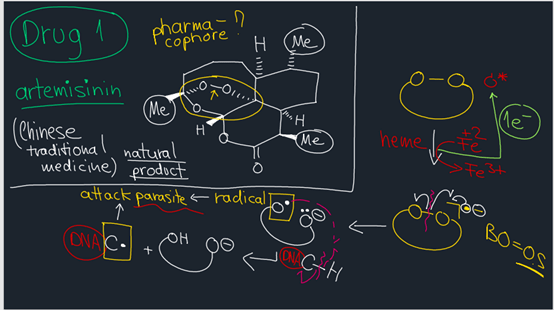 Drug 1
pharma-?
cophore
artemisinin
(Chinese
traditional
medicine)
natural
product
Me
H
Me
O
O
O
H
O
Me
H
O
O — O
O
1e⁻
heme
+2
Fe
Fe3+
attack parasite ← radical
O•
O⊖
O O
BO=0.5
DNA C•
+
OH
O⊖
DNA C-H